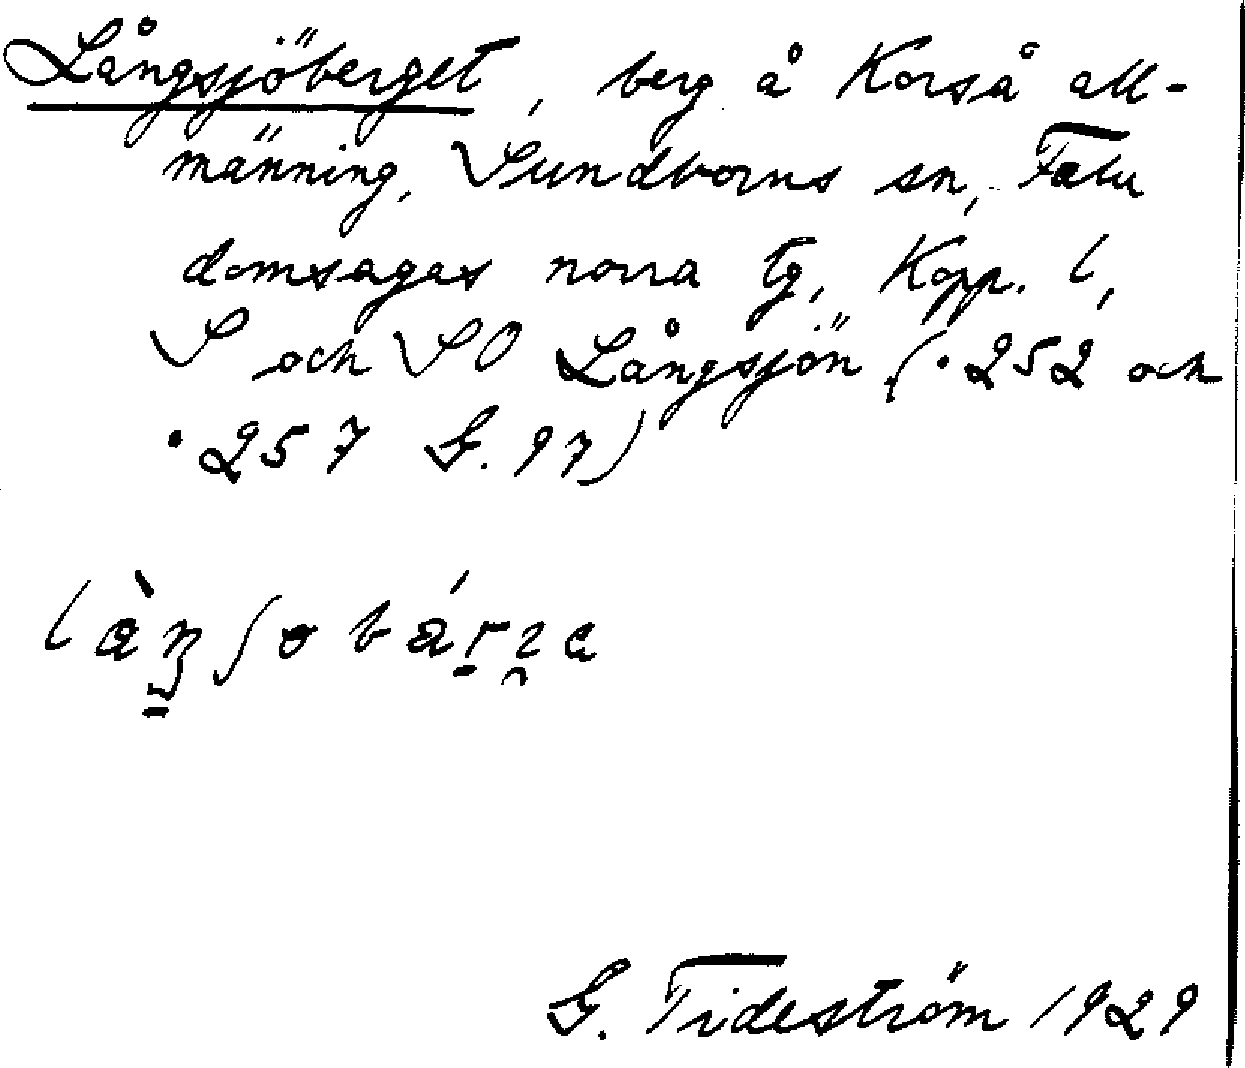 Långsjöberget, berg å Korså all-
männing, Sundborns sn, Falu
domsagas norra tg, Kopp. l,
S och SO Långsjön (·252 och
·257 G. 97)
G. Tideström 1929